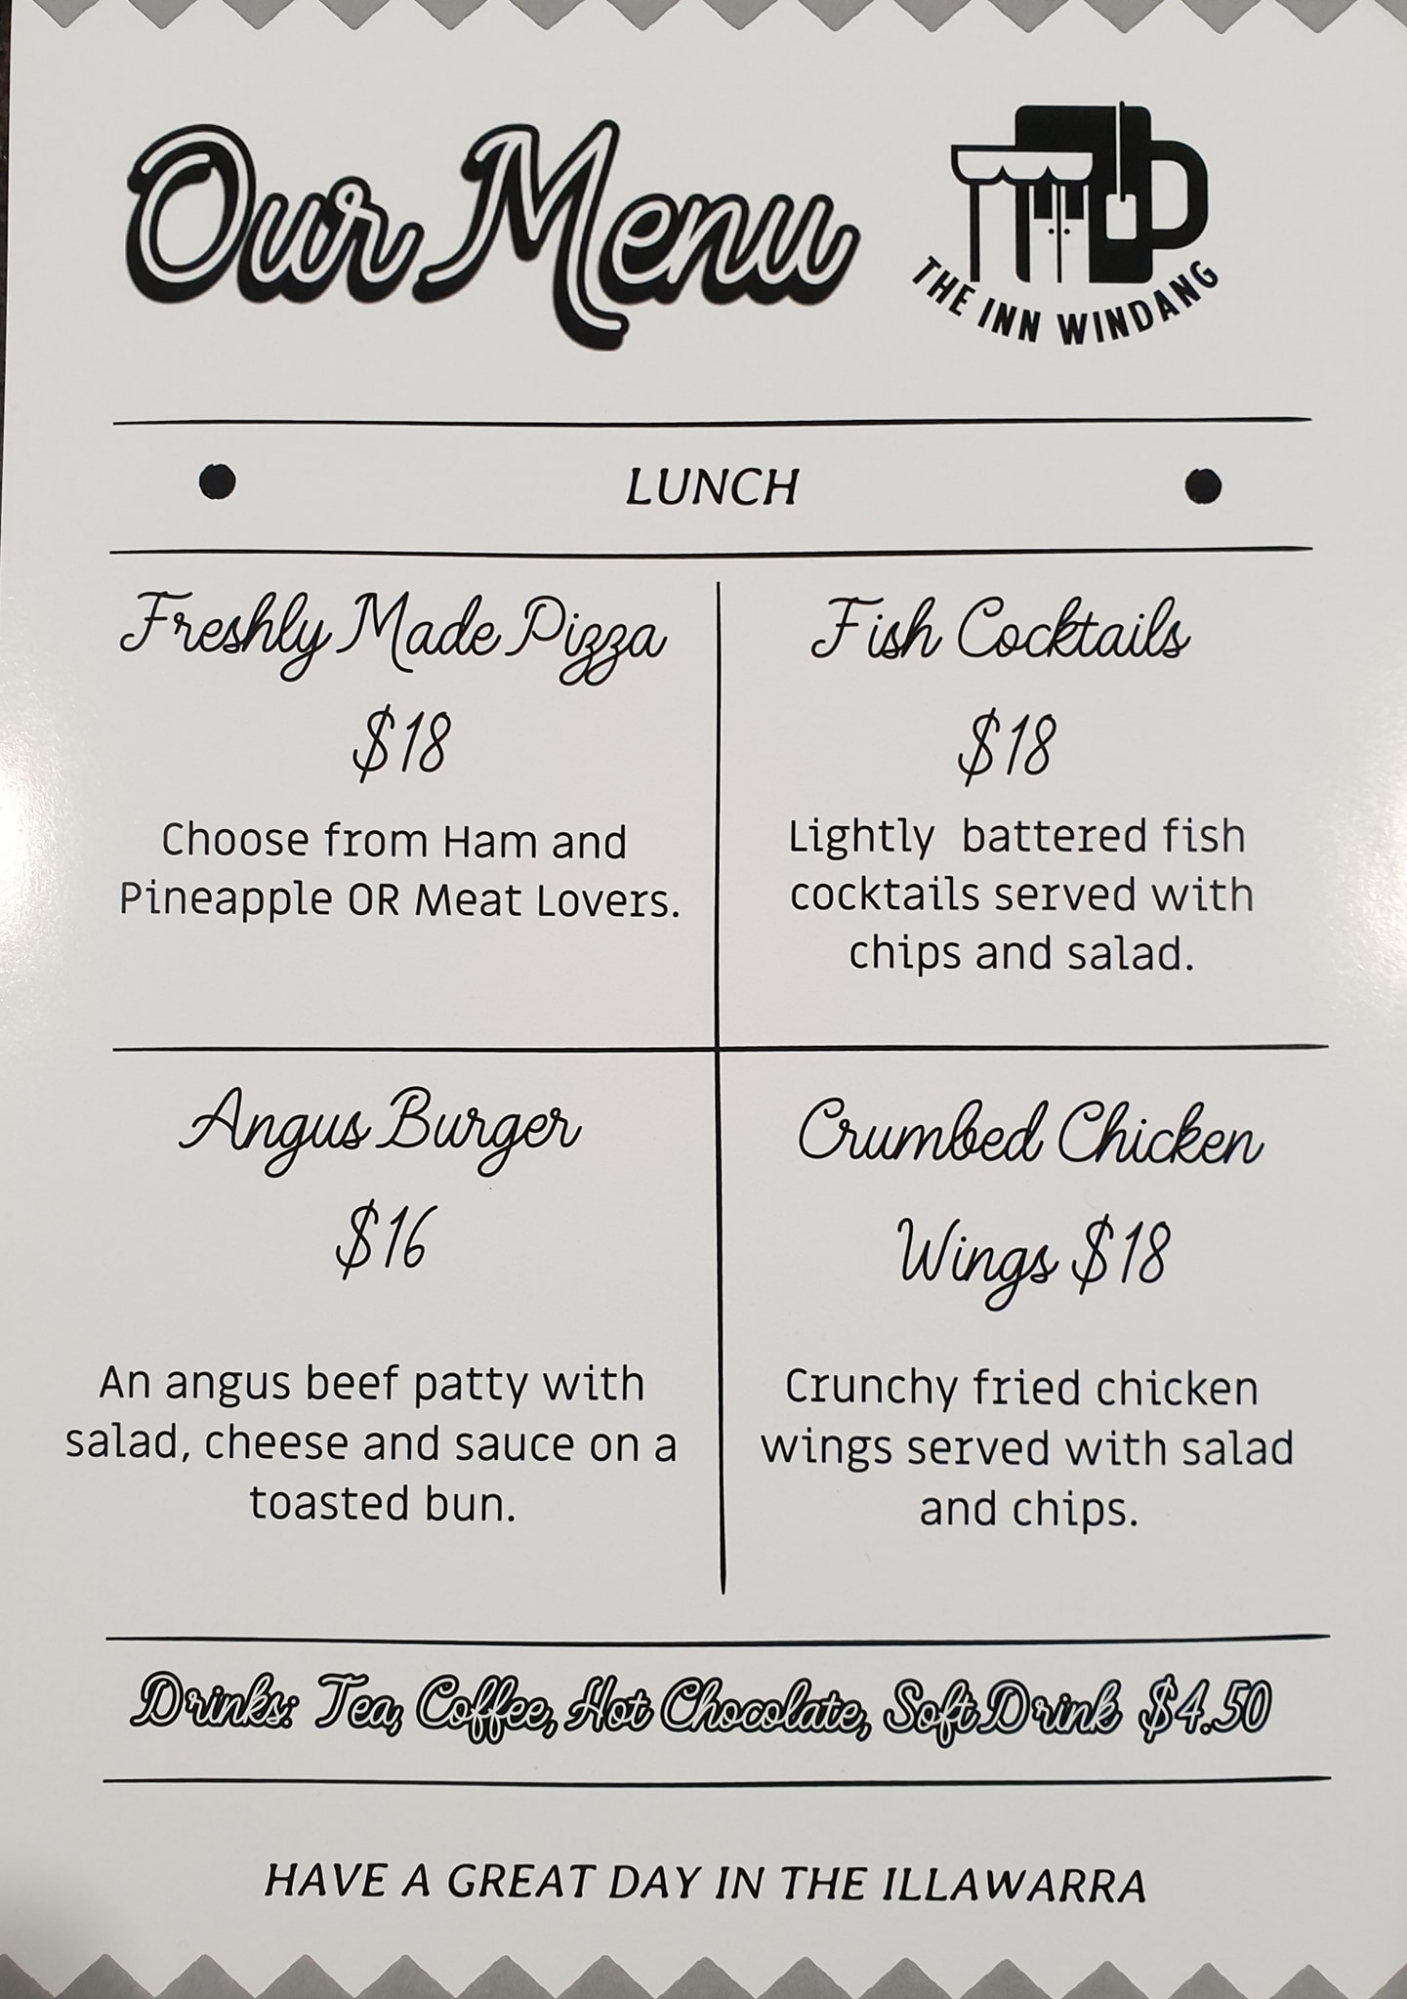 Our Menu
THE INN WINDANG
LUNCH
Freshly Made Pizza
$18
Choose from Ham and
Pineapple OR Meat Lovers.
Fish Cocktails
$18
Lightly  battered fish
cocktails served with
chips and salad.
Angus Burger
$16
An angus beef patty with
salad, cheese and sauce on a
toasted bun.
Crumbed Chicken
Wings $18
Crunchy fried chicken
wings served with salad
and chips.
Drinks: Tea, Coffee, Hot Chocolate, Soft Drink $4.50
HAVE A GREAT DAY IN THE ILLAWARRA